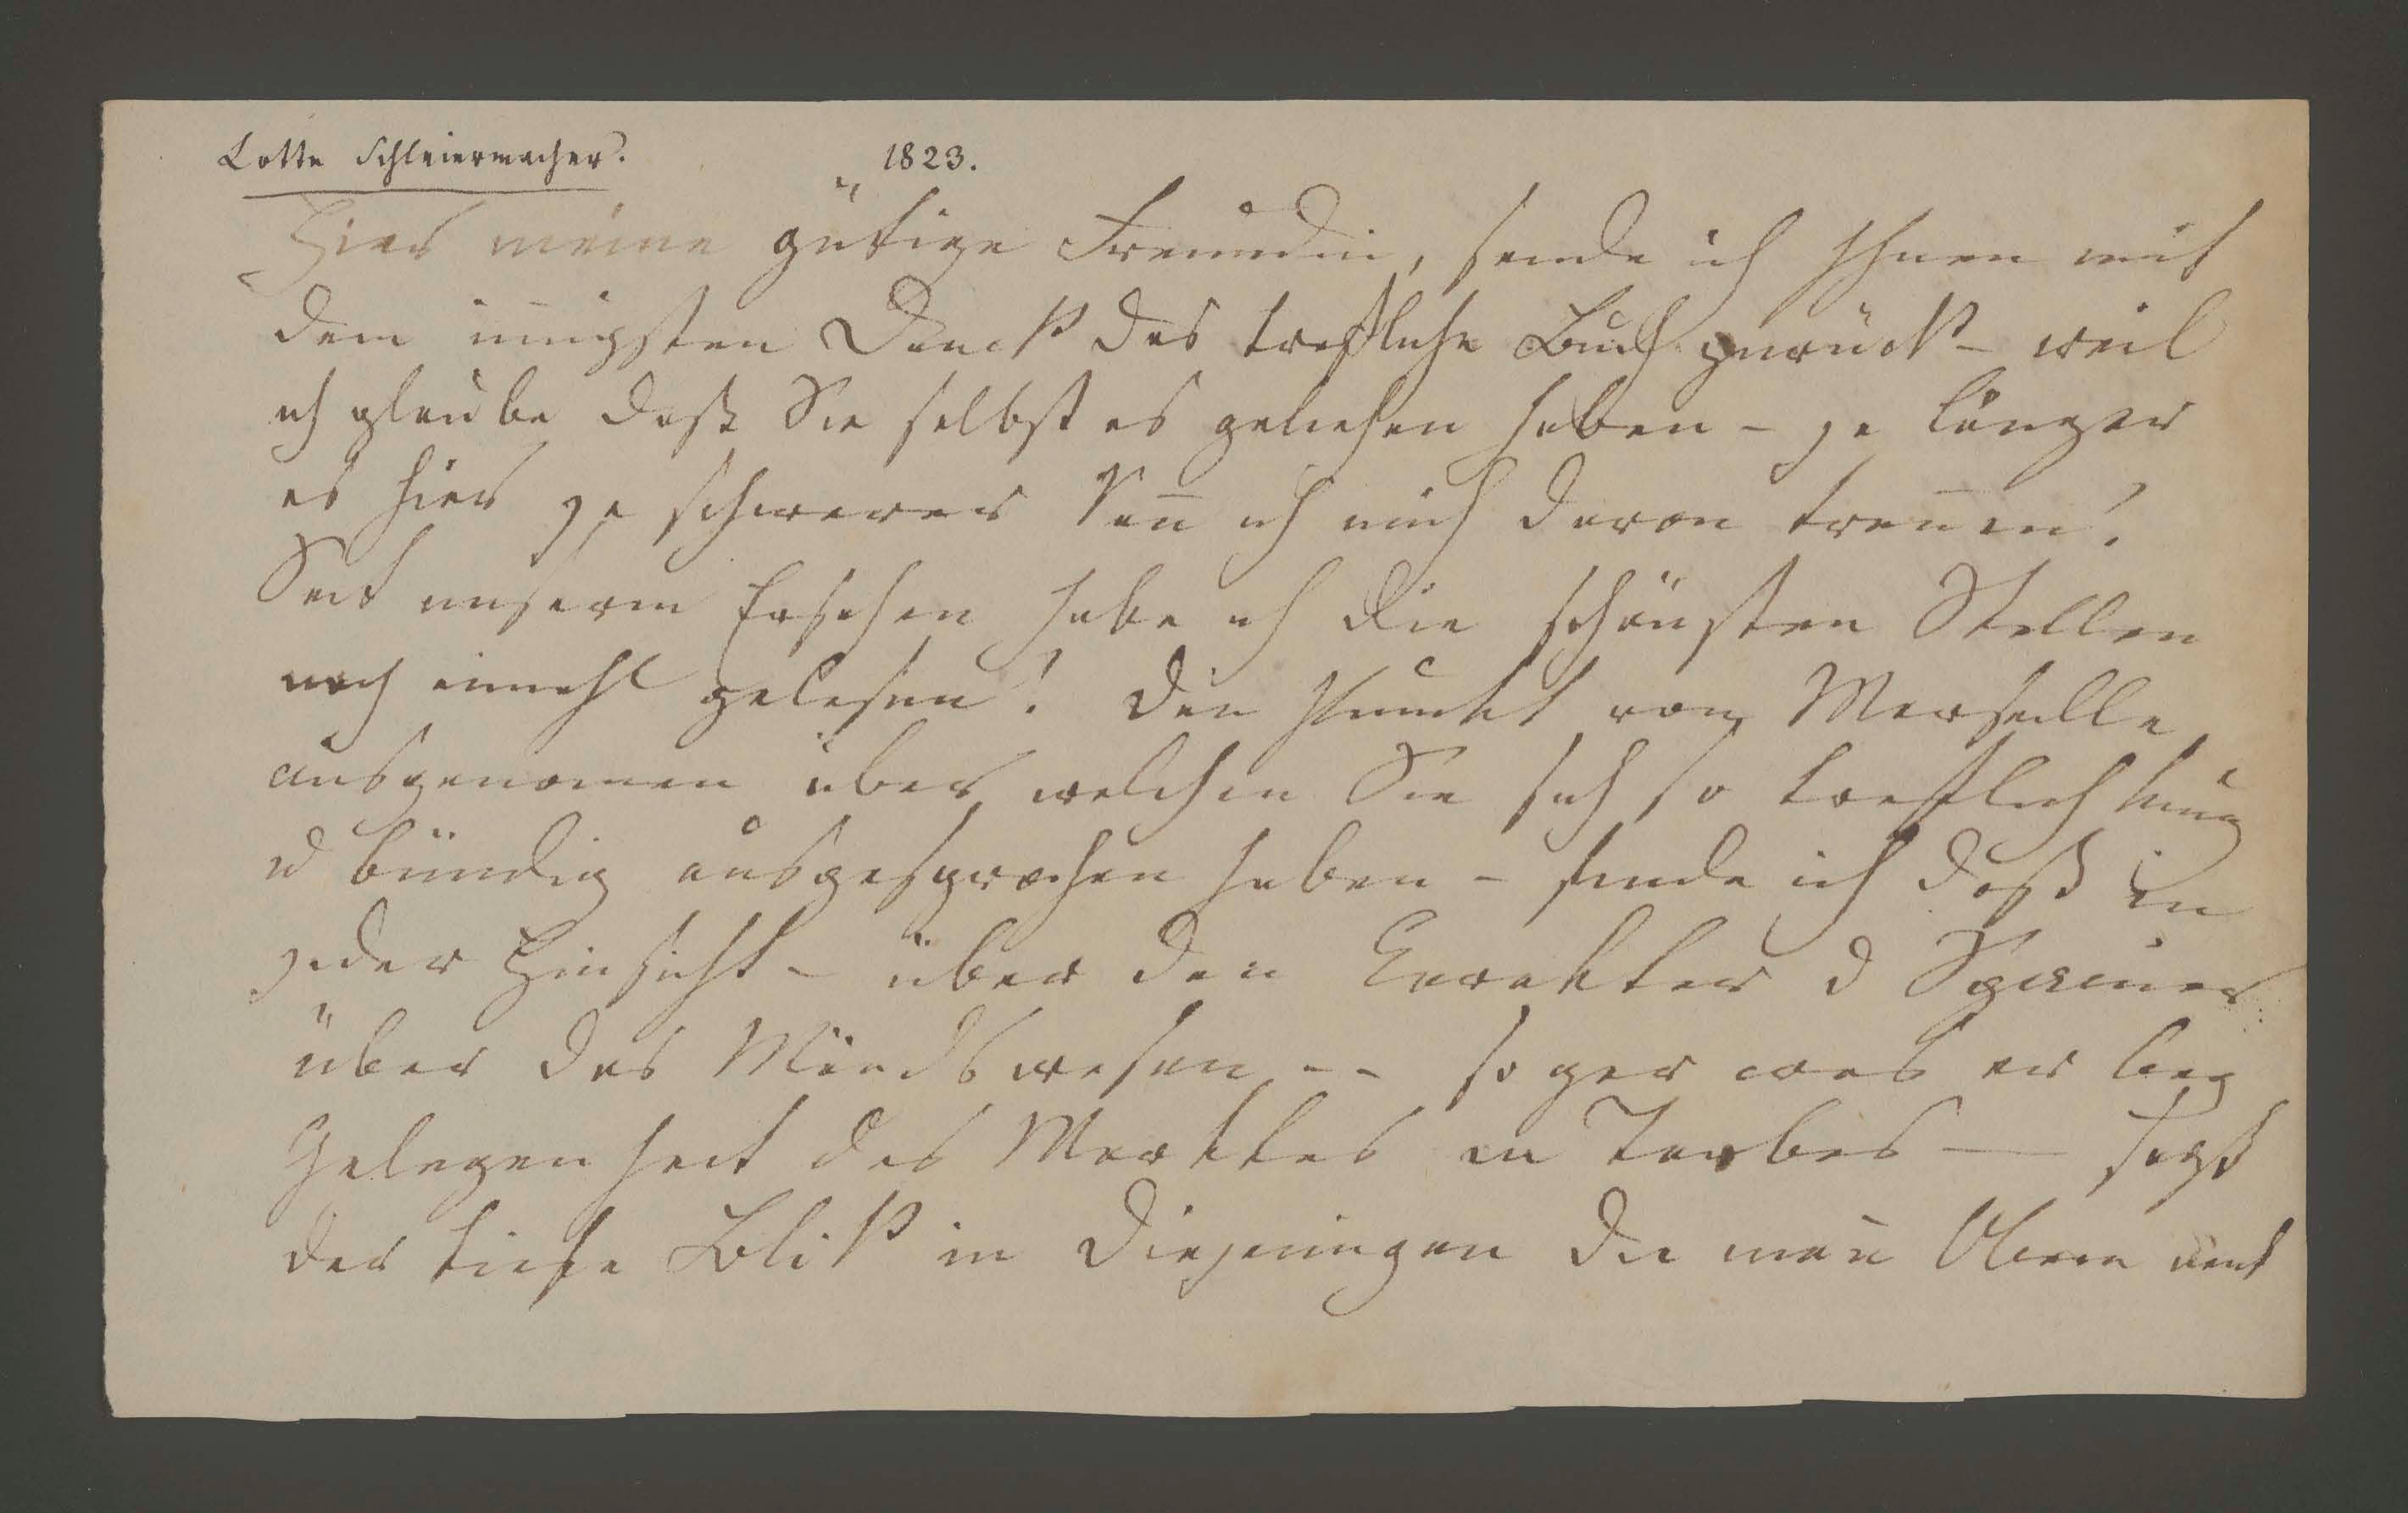 Lotte Schleiermacher. 1823.
Hier meine gütige Freundin, sende ich Ihnen mit
dem innigsten Danck das trefliche Buch zurück – weil
ich glaube daß Sie selbst es geliehen haben – je länger
es hier je schwerer kan̄ ich mich davon tren̄en!
Seit unserm Ersehen habe ich die schönsten Stellen
noch einmahl gelesen! Den Punckt von Marseille
ausgenomen über welchen Sie sich so treflich kurz
u bündig ausgesprochen haben – finde ich daß in
jeder Hinsicht – über den Carakter d Spanier
über das Mönchswesen – – sogar was er bey
Gelegenheit des Marktes in Tarbes — sagt
der tiefe Blik in diejenigen die man̄ Obern nent